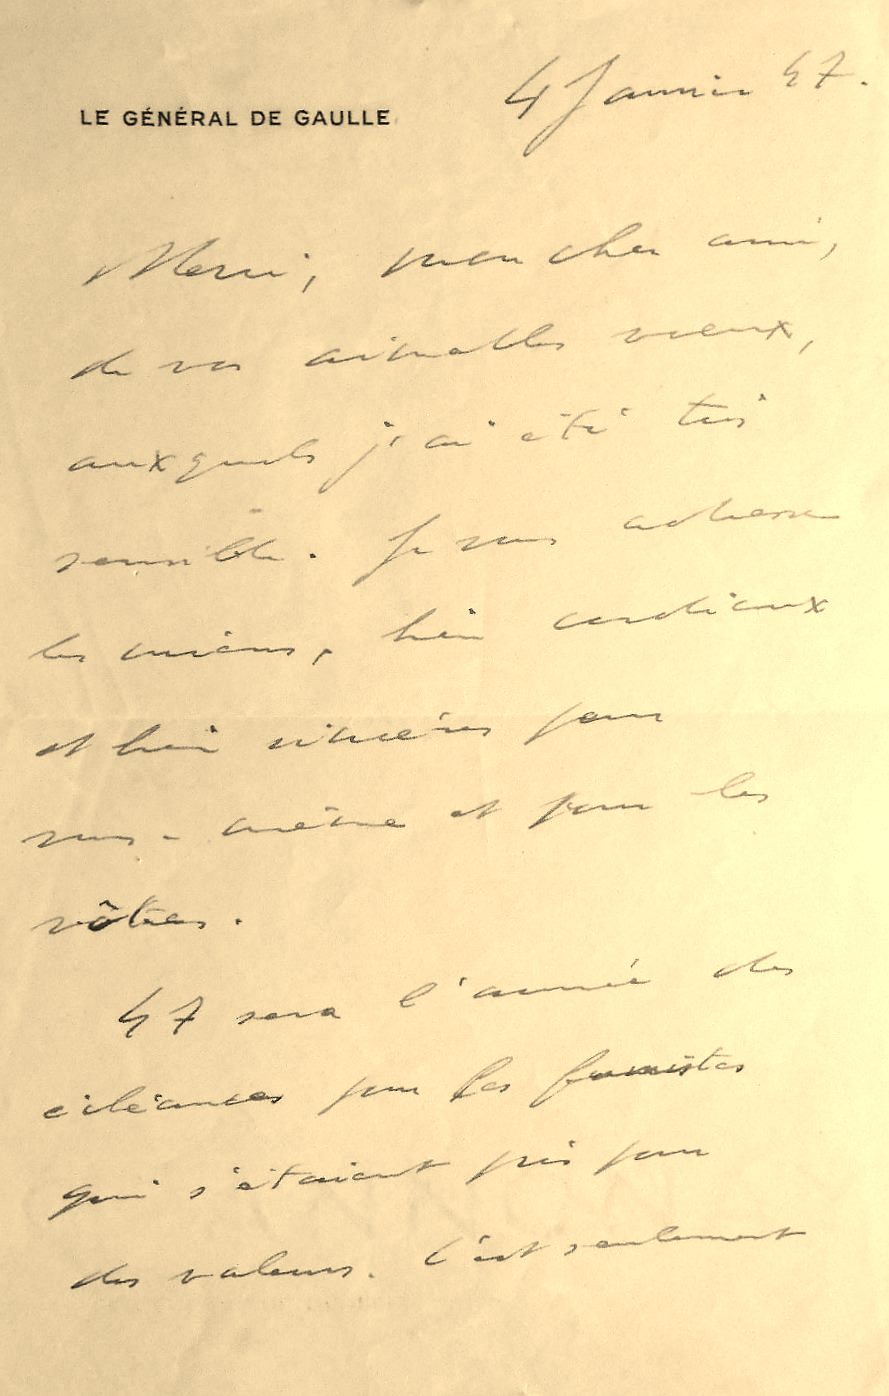 LE GÉNÉRAL DE GAULLE
4 Janvier 47.
Merci, mon cher ami,
de vos aimables vœux,
auxquels j'ai été très
sensible. Je vous adresse
les miens, bien cordiaux
et bien sincères pour
vous-même et pour les
vôtres.
47 sera l'année des
échéances pour les fumistes
qui s'étaient pris pour
des valeurs. C'est seulement